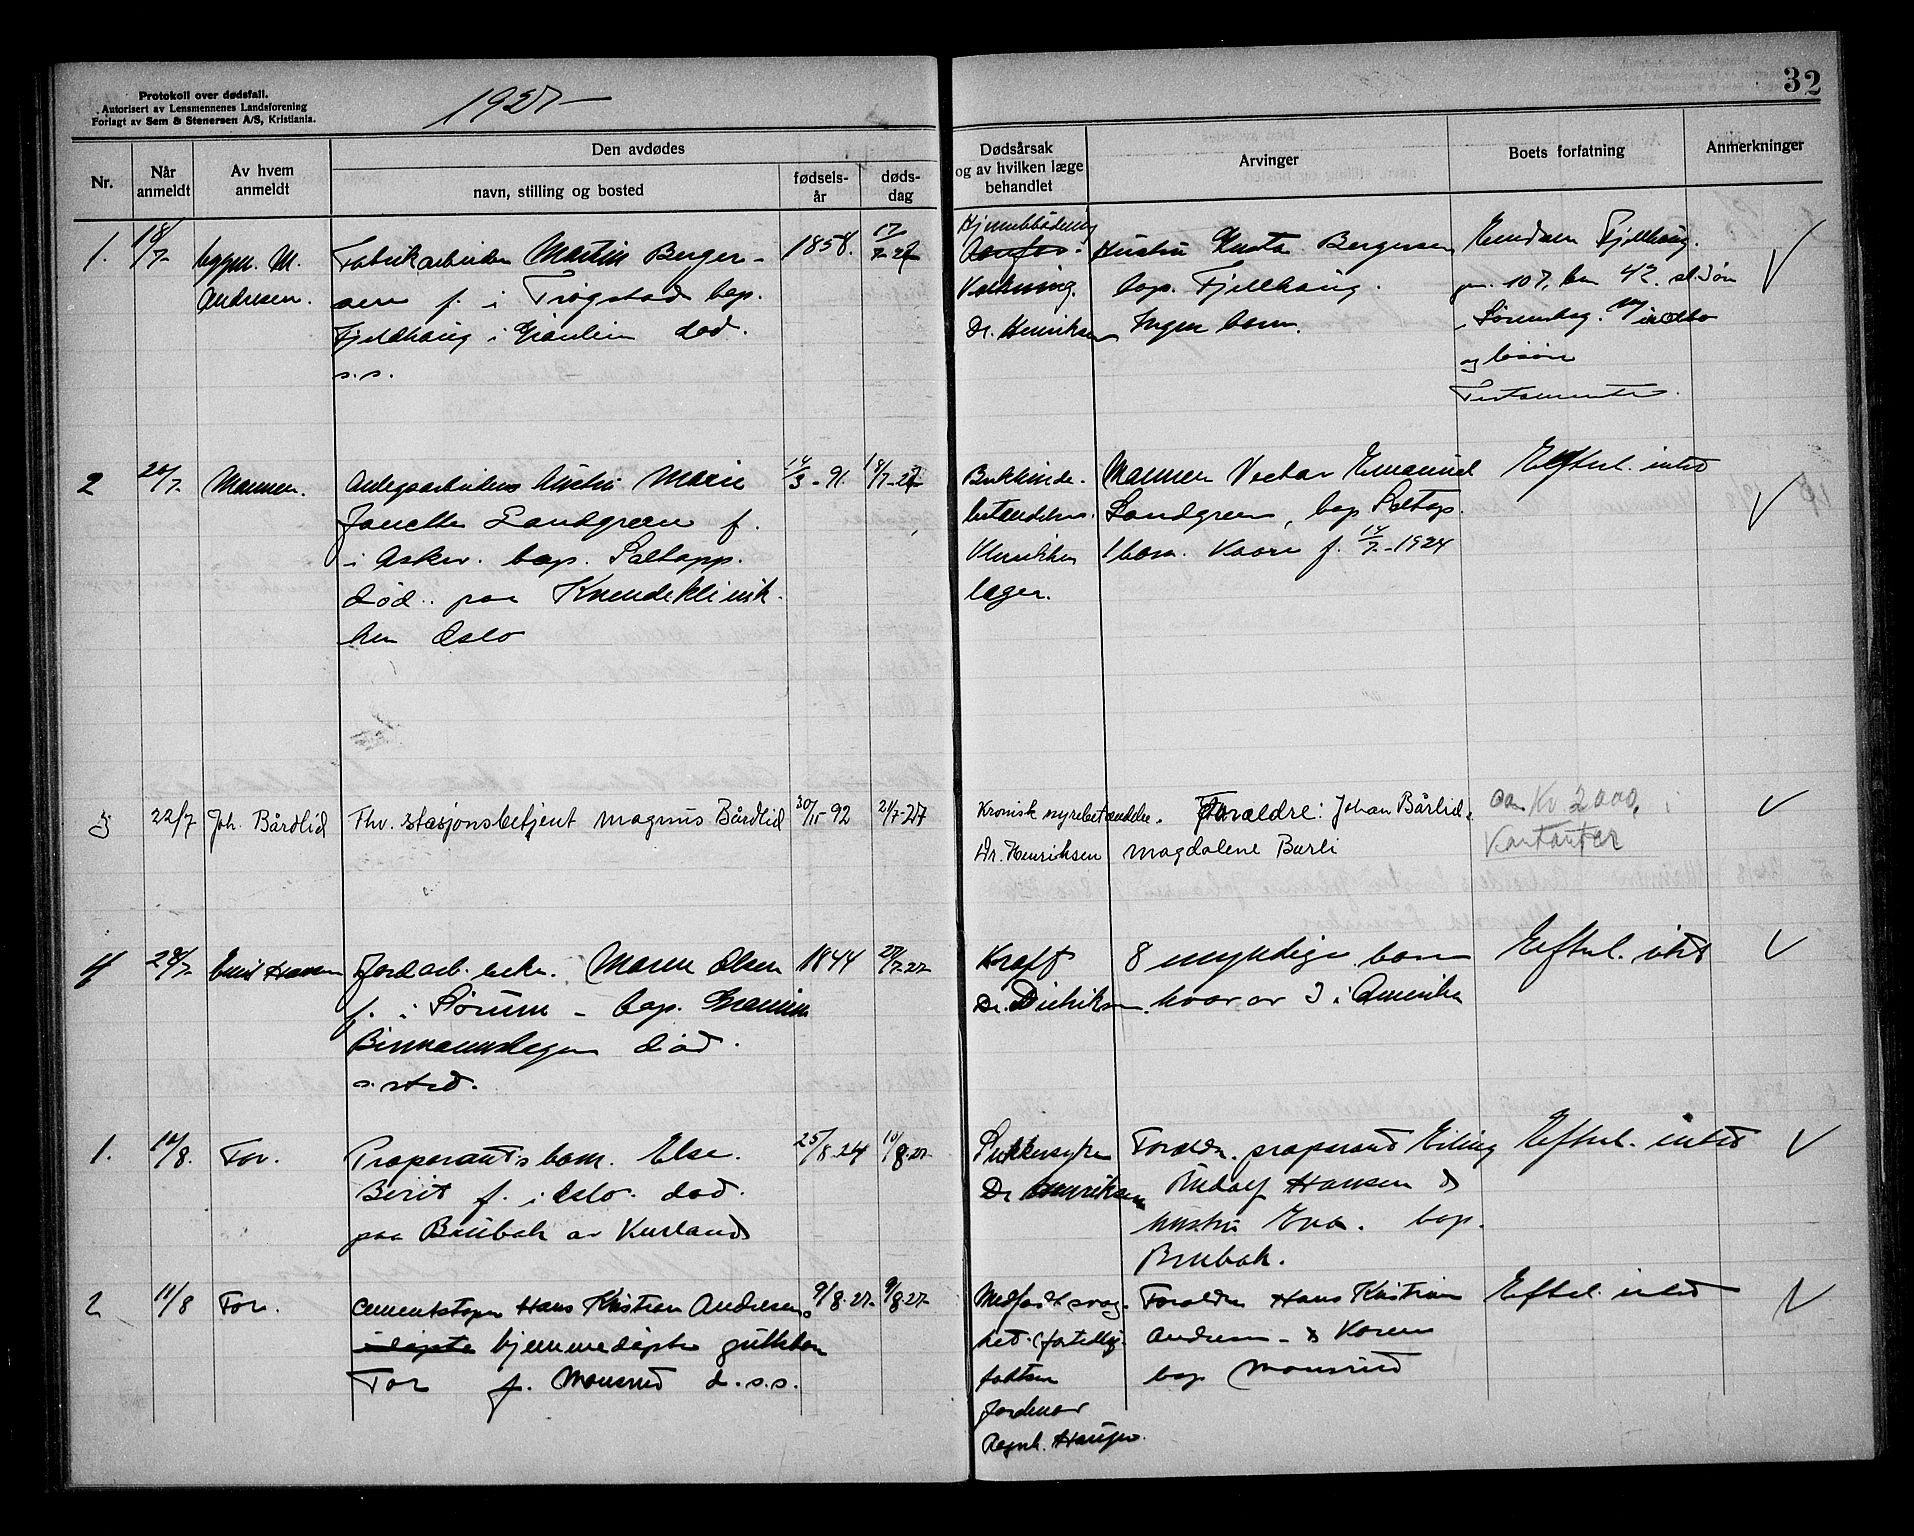 Protokoll over dødsfall.
Autorisert av Lensmennenes Landsforening
Forlagt av Sem & Stenersen A/S, Kristiania.
1927
32
Nr.
Når anmeldt
Av hvem anmeldt
Den avdødes
navn, stilling og bosted
fødsels-år
døds-dag
Dødsårsak og av hvilken læge behandlet
Arvinger
Boets forfatning
Anmerkninger
1. 18/7- M. Andresen.
Fabrikarbeider Martin Berger-
sen f. i Trøgstad bop.
Fjeldhaug i død.
s.s.
1858. 17/7-27
Dr. Henriksen
Hustru Bergersen
bop. Fjellhaug.
Ingen barn.
Fjellhaug.
gn. 107, bn 42
og løsøre
Testamente.
2 20/7- Mannen.
Anlegsarbeiders hustru Marie
Janette Landgreen f.
i Asker. bop. Saltopp.
død. paa Kvindeklinik-
ken Oslo
14/3-91. 18/7-27
Bukhinde-
betændelse.
Klinikken
læger.
Mannen Emanuel
Landgreen, bop Saltop.
1 barn. Kaare f. 14/7-1924
Efterl. intet
3 22/7 Joh. Bårdlid
Fhv. stasjonsbetjent Magnus Bårdlid
92 21/7-27
Kronisk nyrebetændelse.
Dr. Henriksen
Forældre: Johan Bårlid.
Magdalene Burli
ca Kr 2000, i
Kontanter
4 Emil Hansen
Jordarb. enke. Maren Olsen
f. i Sørum - bop.
død.
s. sted.
1844
Kræft
Dr.
8 myndige barn
hvor av 3 i Amerika
Efterl. intet
1. 10/8. Far.
Præparants barn. Else.
Berit f. i Oslo. død.
paa Brubak av Kurland
25/8-24 10/8-27
Sukkersyke
Dr Henriksen
Foreldr. præparand Eiling
Rudolf Hansen &
hustru Eva. bop.
Brubak.
Efterl. intet
2 11/8 Far.
cementstøper Hans Kristian Andresens
hjemmedøpte guttebarn
Tor f. Mansrud d. s.s.
9/8-27- 9/8-27-
Medfødt svag-
het (fortidlig
født
Jordmor
Ragnh. Haugen.
Foreldre Hans Kristian
Andresen - & Karen
bop Mansrud
Efterl. intet